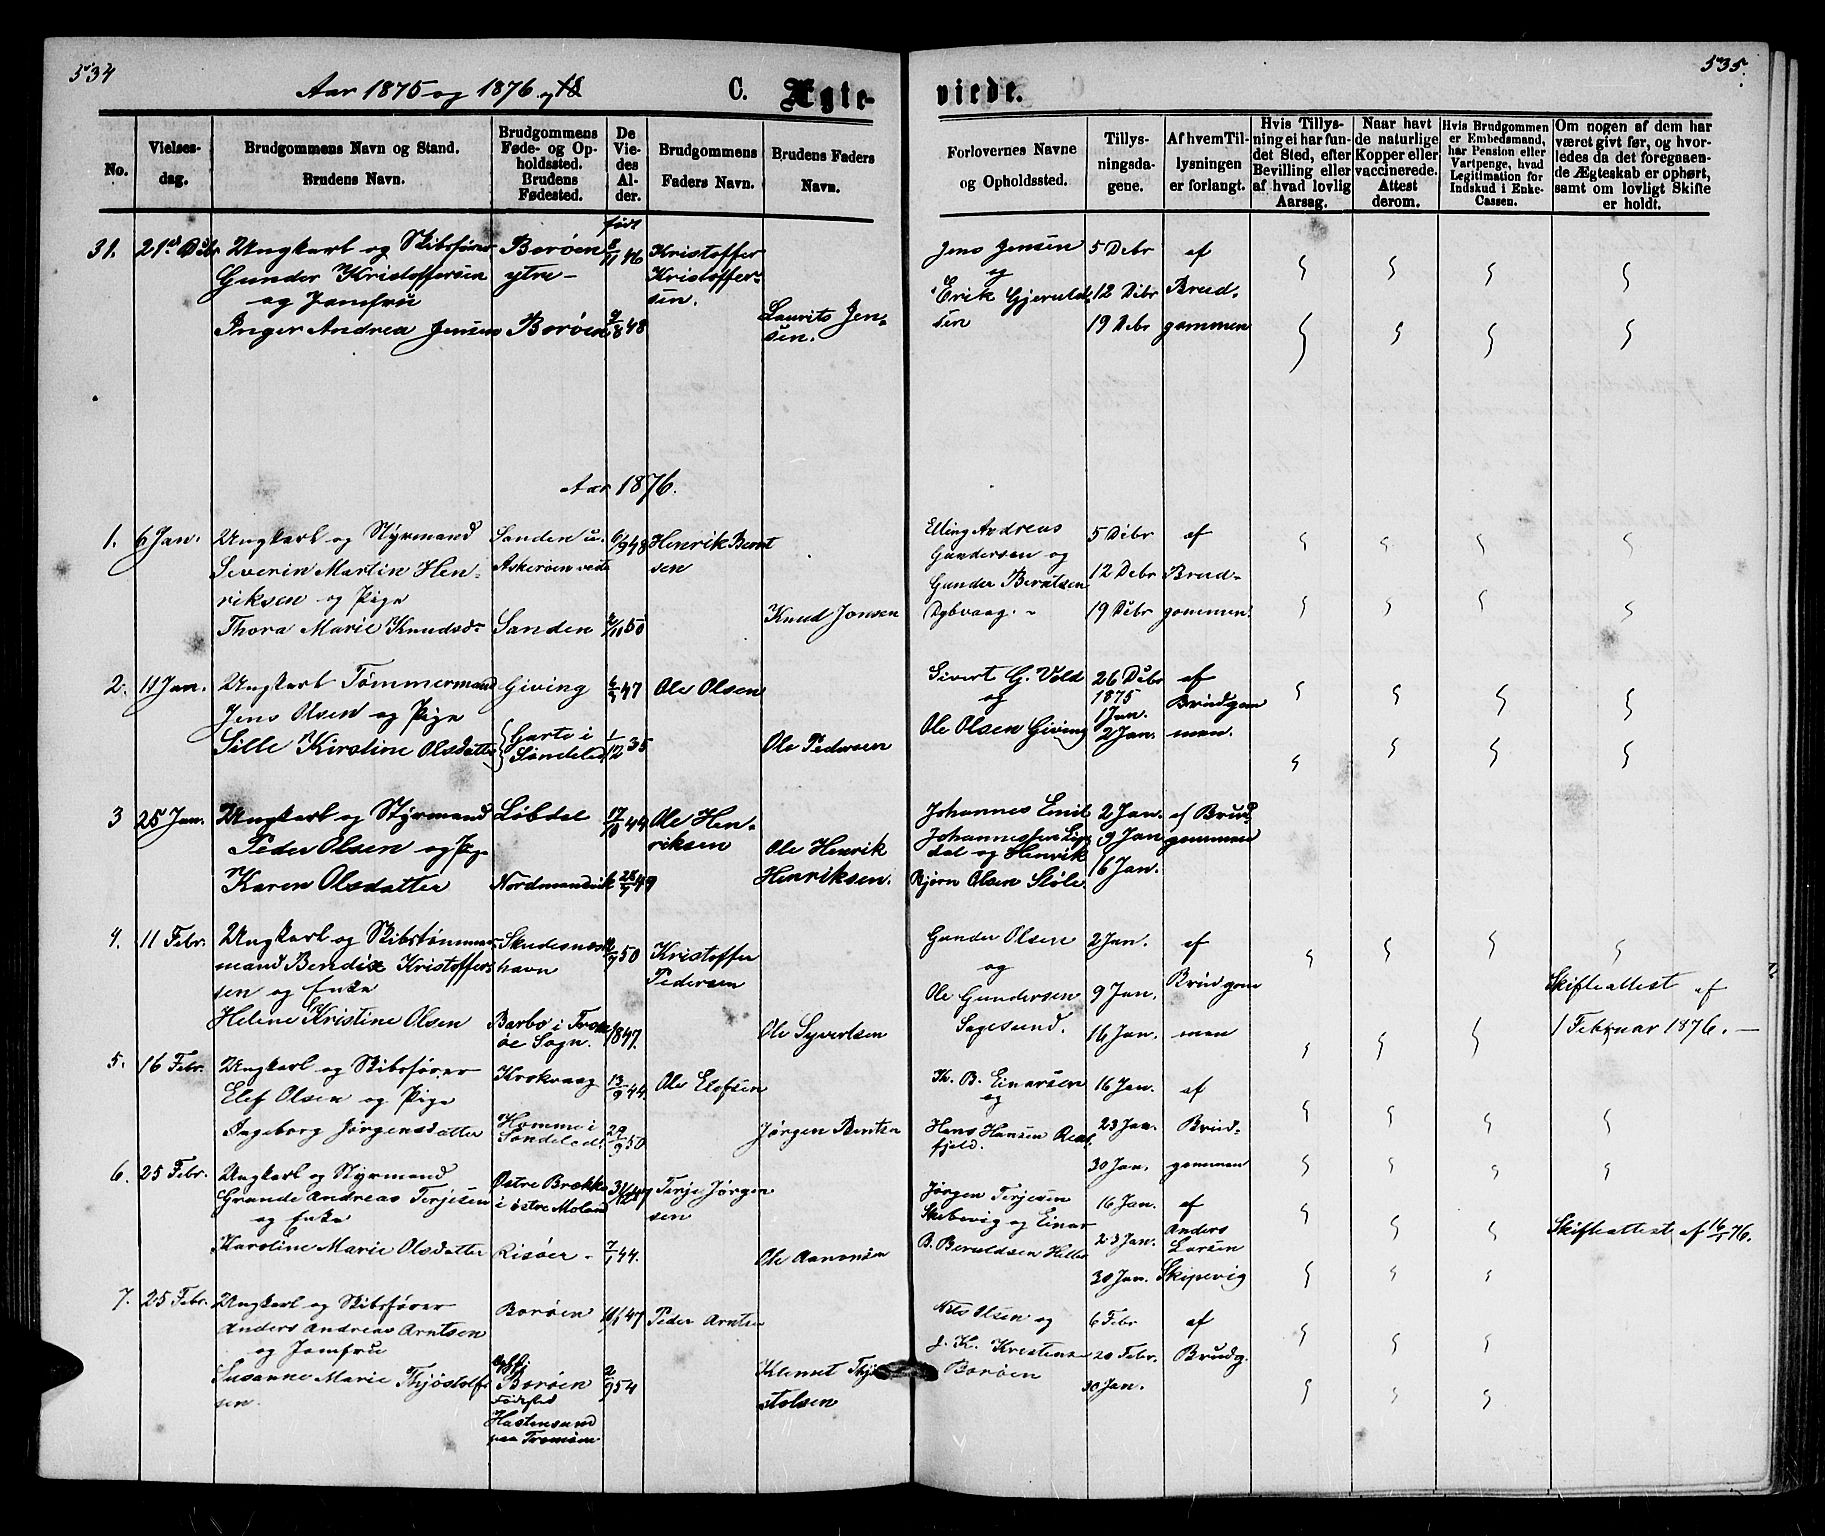 534
Aar 1875 og 1876
C. Ægte-
viede.
535.
No.
Vielses-
dag.
Brudgommens Navn og Stand.
Brudens Navn.
Brudgommens
Føde- og Op-
holdssted.
Brudens
Fødested.
De
Vie-
des
Al-
der.
Brudgommens
Faders Navn.
Brudens Faders
Navn.
Forlovernes Navne
og Opholdssted.
Tillys-
ningsda-
gene.
Af hvem Til-
lysningen
er forlangt.
Hvis Tillys-
ning ei har fun-
det Sted, efter
Bevilling eller
af hvad lovlig
Aarsag.
Naar havt
de naturlige
Kopper eller
vaccinerede.
Attest
derom.
Hvis Brudgommen
er Embedsmand,
har Pension eller
Vartpenge, hvad
Legitimation for
Indskud i Enke-
Cassen.
Om nogen af dem har
været givt før, og hvor-
ledes da det foregaaen-
de Ægteskab er ophørt,
samt om lovligt Skifte
er holdt.
31. 21de Dcbr Ungkarl og Skibsfører
Gunder Kristoffersen
og Jomfru
Inger Andrea Jensen
Borøen
ytre
Borøen
født
5/11 46
9/8 48
Kristoffer
Kristoffer-
sen.
Laurits Jen-
sen.
Jens Jensen
og
Erik Gjeruld-
sen
5 Debr
12 Debr
19 Debr
af
Brud-
gommen
Aar 1876.
1. 6 Jan. Ungkarl og Styrmand
Severin Martin Hen-
riksen og Pige
Thora Marie Knudsd-
Sanden u.
Askerøen
Sanden
6/9 48
2/11 50
Henrik Bernt
sen
Knud Jonsen
Elling Andreas
Gundersen og
Gunder Berntsen
Dybvaag.
5 Debr
12 Debr
19 Debr
af
Brud-
gommen.
2. 11 Jan. Ungkarl Tømmermand
Jens Olsen og Pige
Sille Kirstine Olsdatter
Giving
Garto i
Søndeled
6/3 47
1/12 35
Ole Olsen
Ole Pedersen
Sivert G. Vold
og
Ole Olsen Giving
26 Debr
1875
1 Jan.
2 Jan.
af
Brudgom
men.
3 25 Jan. Ungkarl og Styrmand
Peder Olsen og Pige
Karen Olsdatter
Løbdal
Nordmandvik
17/10 44
28/7 49
Ole Hen-
riksen
Ole Henrik
Henriksen.
Johannes Emil
Johannessen Løv
dal og Henrik
Bjørn Olsen Støle
2 Jan.
9 Jan
16 Jan.
af Brud-
gommen
4. 11 Febr. Ungkarl og Skibstømmer
mand Bendix Kristoffer-
sen og Enke
Helene Kristine Olsen
Skudesnæs
havn
Barbo i Trom
øe Sogn.
50
1847.
Kristoffer
Pedersen
Ole Syvertsen
Gunder Olsen
og
Ole Gundersen
Sagesund.
2 Jan.
9 Jan.
16 Jan.
af
Brudgom
men
Skifteattest af
1 Februar 1876.
5. 16 Febr. Ungkarl og Skibsfører
Elef Olsen og Pige
Ingeborg Jørgensdatter
Krokvaag
Homme i
Søndeled.
13/9 44
29/9 50
Ole Elefsen
Jørgen Bentsen
Th. B. Einarsen
og
Hans Hansen
fjeld.
16 Jan.
23 Jan.
30 Jan.
af
Brud-
gommen
6. 25 Febr. Ungkarl og Styrmand
Grunde Andreas Terjesen
og Enke
Karoline Marie Olsdatter
Østre Brække
i østre Moland
Risøer
31/12 47
7/1 44.
Terje Jørgen
sen
Ole Aanonsen
Jørgen Terjesen
Skibevig og Einar
B. Beruldsen
16 Jan.
23 Jan.
30 Jan.
af
Anders
Larsen
Skipevig
Skifteattest af 16/1 76.
7. 25 Febr. Ungkarl og Skibsfører
Anders Andreas Arntsen
og Jomfru
Susanne Marie Thjøstolf
sen.
Borøen
Borøen
Fødested
Hastensund
paa Tromøen
10/1 47
2/9 54
Peder Arntsen
Klemet Thjø
stolsen
Nils Olsen og
J. K. Kristensen
Borøen
6 Febr
20 Febr.
30 Jan.
af
Brudg.